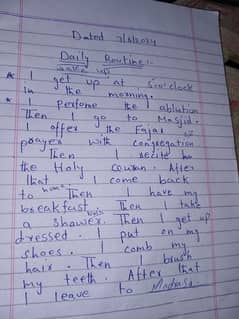 Dated 7/8/2024
Daily Routine:-
wake up
* I get up at 5:00'clock
in the morning.
* I perfome the ablution
Then I go to Masjid.
I offer the Fajar
prayer with congregation
Then I recite
the Holy Qouran. After
that I come back
to home Then I have my
breakfast. Then I take
a shower. Then I get up
dressed. I put on my
shoes. I comb my
hair. Then I brush
my teeth. After that
I leave to Madrasa.